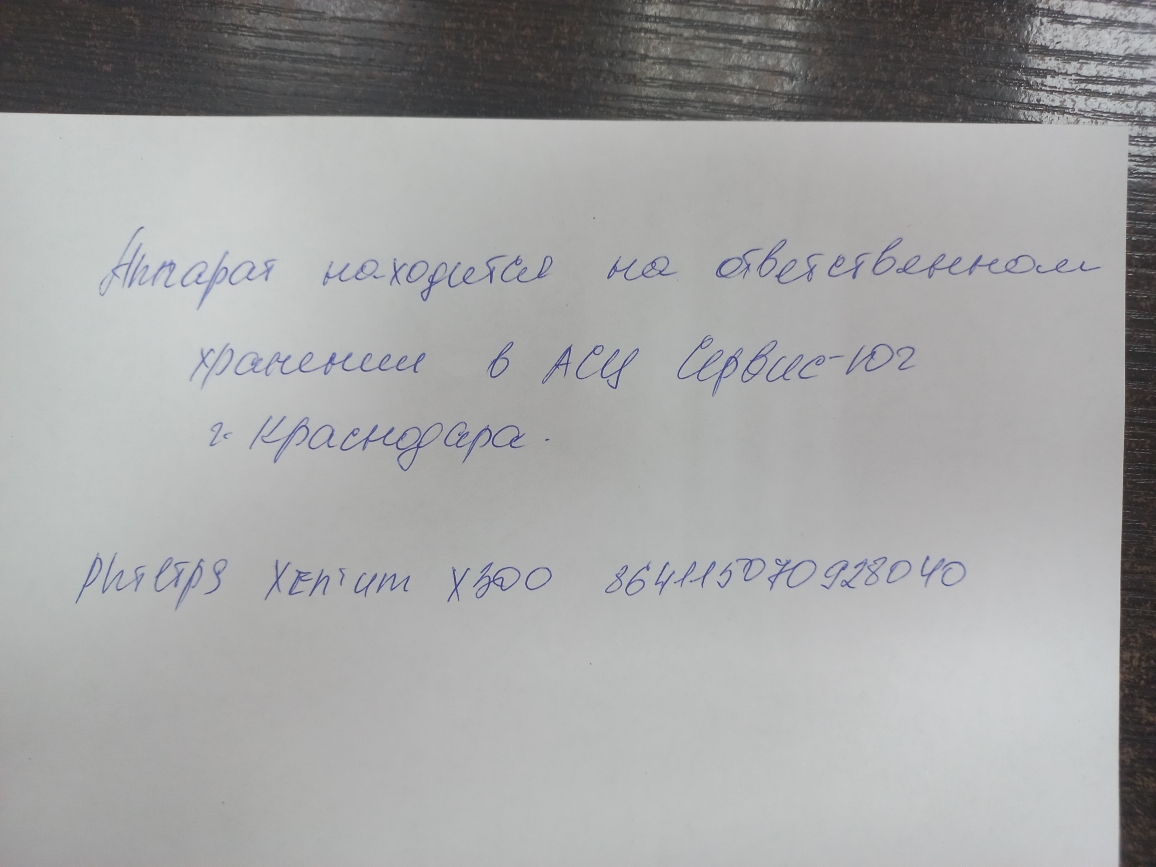 Аппарат находится на ответственном
хранении в АСЦ Сервис-Юг
г. Краснодара.
Xenium X300 864115070928040